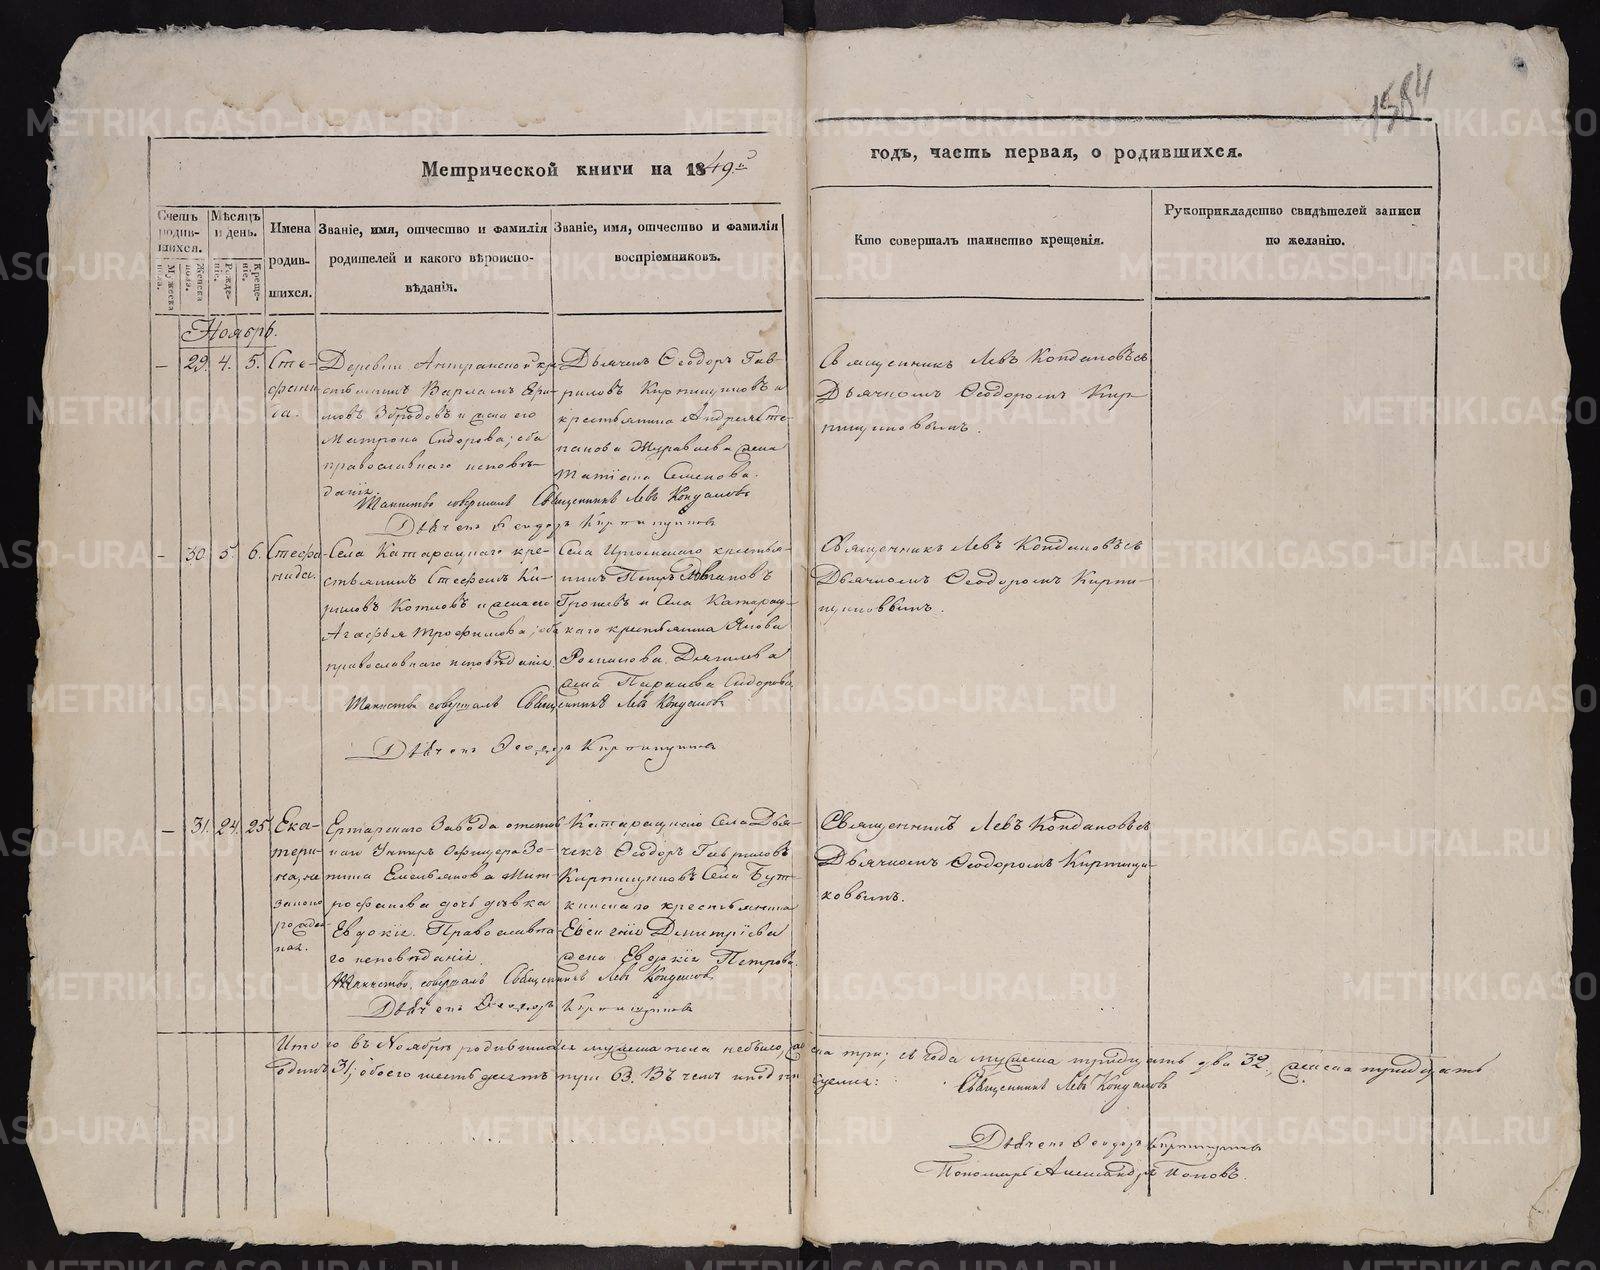 1584
Метрической книги на 1849й
годъ, часть первая, о родившихся.
Счетъ родившихся.
Мужеска пола.
Женска пола.
Мѣсяцъ и день.
Рожденіе.
Крещеніе.
Имена родившихся.
Званіе, имя, отчество и фамилія родителей и какого вѣроисповѣданія.
Званіе, имя, отчество и фамилія воспріемниковъ.
Кто совершалъ таинство крещенія.
Рукоприкладство свидѣтелей записи по желанію.
Ноябрь.
— 29. 4. 5.
Сте-
фани-
да.
Деревни
стьянинъ Варламъ Ефи-
мовъ Збродовъ и жена его
Матрона Сидорова; оба
православнаго исповѣ-
данія.
Дьячекъ Ѳеодоръ Гав-
риловъ Кирпищиковъ и
крестьянина Андрея Сте-
панова Муравьева жена
Татіана Семенова.
Священникъ Левъ Кондаковъ съ
Дьячкомъ Ѳеодоромъ Кир-
пищиковымъ.
Таинство совершалъ Священникъ Левъ Кондаковъ
Дьячекъ Ѳеодоръ Кирпищиковъ
— 30. 5. 6.
Стефа-
нида.
Села Катарацкаго кре-
стьянинъ Стефанъ Ки-
риловъ Котловъ и жена его
Агафья Трофимова; оба
православнаго исповѣданія.
Села крестья-
нинъ Петръ
и Села Катарац-
каго крестьянина Якова
Романова Дягилева
жена Параскева Сидорова.
Священникъ Левъ Кондаковъ съ
Дьячкомъ Ѳеодоромъ Кирпи-
щиковымъ.
Таинство совершалъ Священникъ Левъ Кондаковъ
Дьячекъ Ѳеодоръ Кирпищиковъ
— 31. 24. 25.
Ека-
тери-
на, не
законо
рожден-
ная.
Ертарскаго Завода отстав-
наго Унтеръ Офицера
Емельянова Мит-
рофанова дочь дѣвка
Евдокія. Православна-
го исповѣданія.
Катарацкаго Села Дья-
чекъ Ѳеодоръ Гавриловъ
Кирпищиковъ Села Бут-
кинскаго крестьянина
Евгенія Димитріева
жена Евдокія Петрова.
Священникъ Левъ Кондаковъ съ
Дьячкомъ Ѳеодоромъ Кирпищи-
ковымъ.
Таинство совершалъ Священникъ Левъ Кондаковъ
Дьячекъ Ѳеодоръ Кирпищиковъ
Итого въ Ноябрѣ родившихся мужеска пола небыло, женска три; а съ года мужеска тридцать два 32, женска тридцать
одинъ 31; обоего шестьдесятъ три 63. Въ чемъ и подписуемся:
Священникъ Левъ Кондаковъ
Дьячекъ Ѳеодоръ Кирпищиковъ
Пономарь Александръ Поповъ.
METRIKI.GASO-URAL.RU